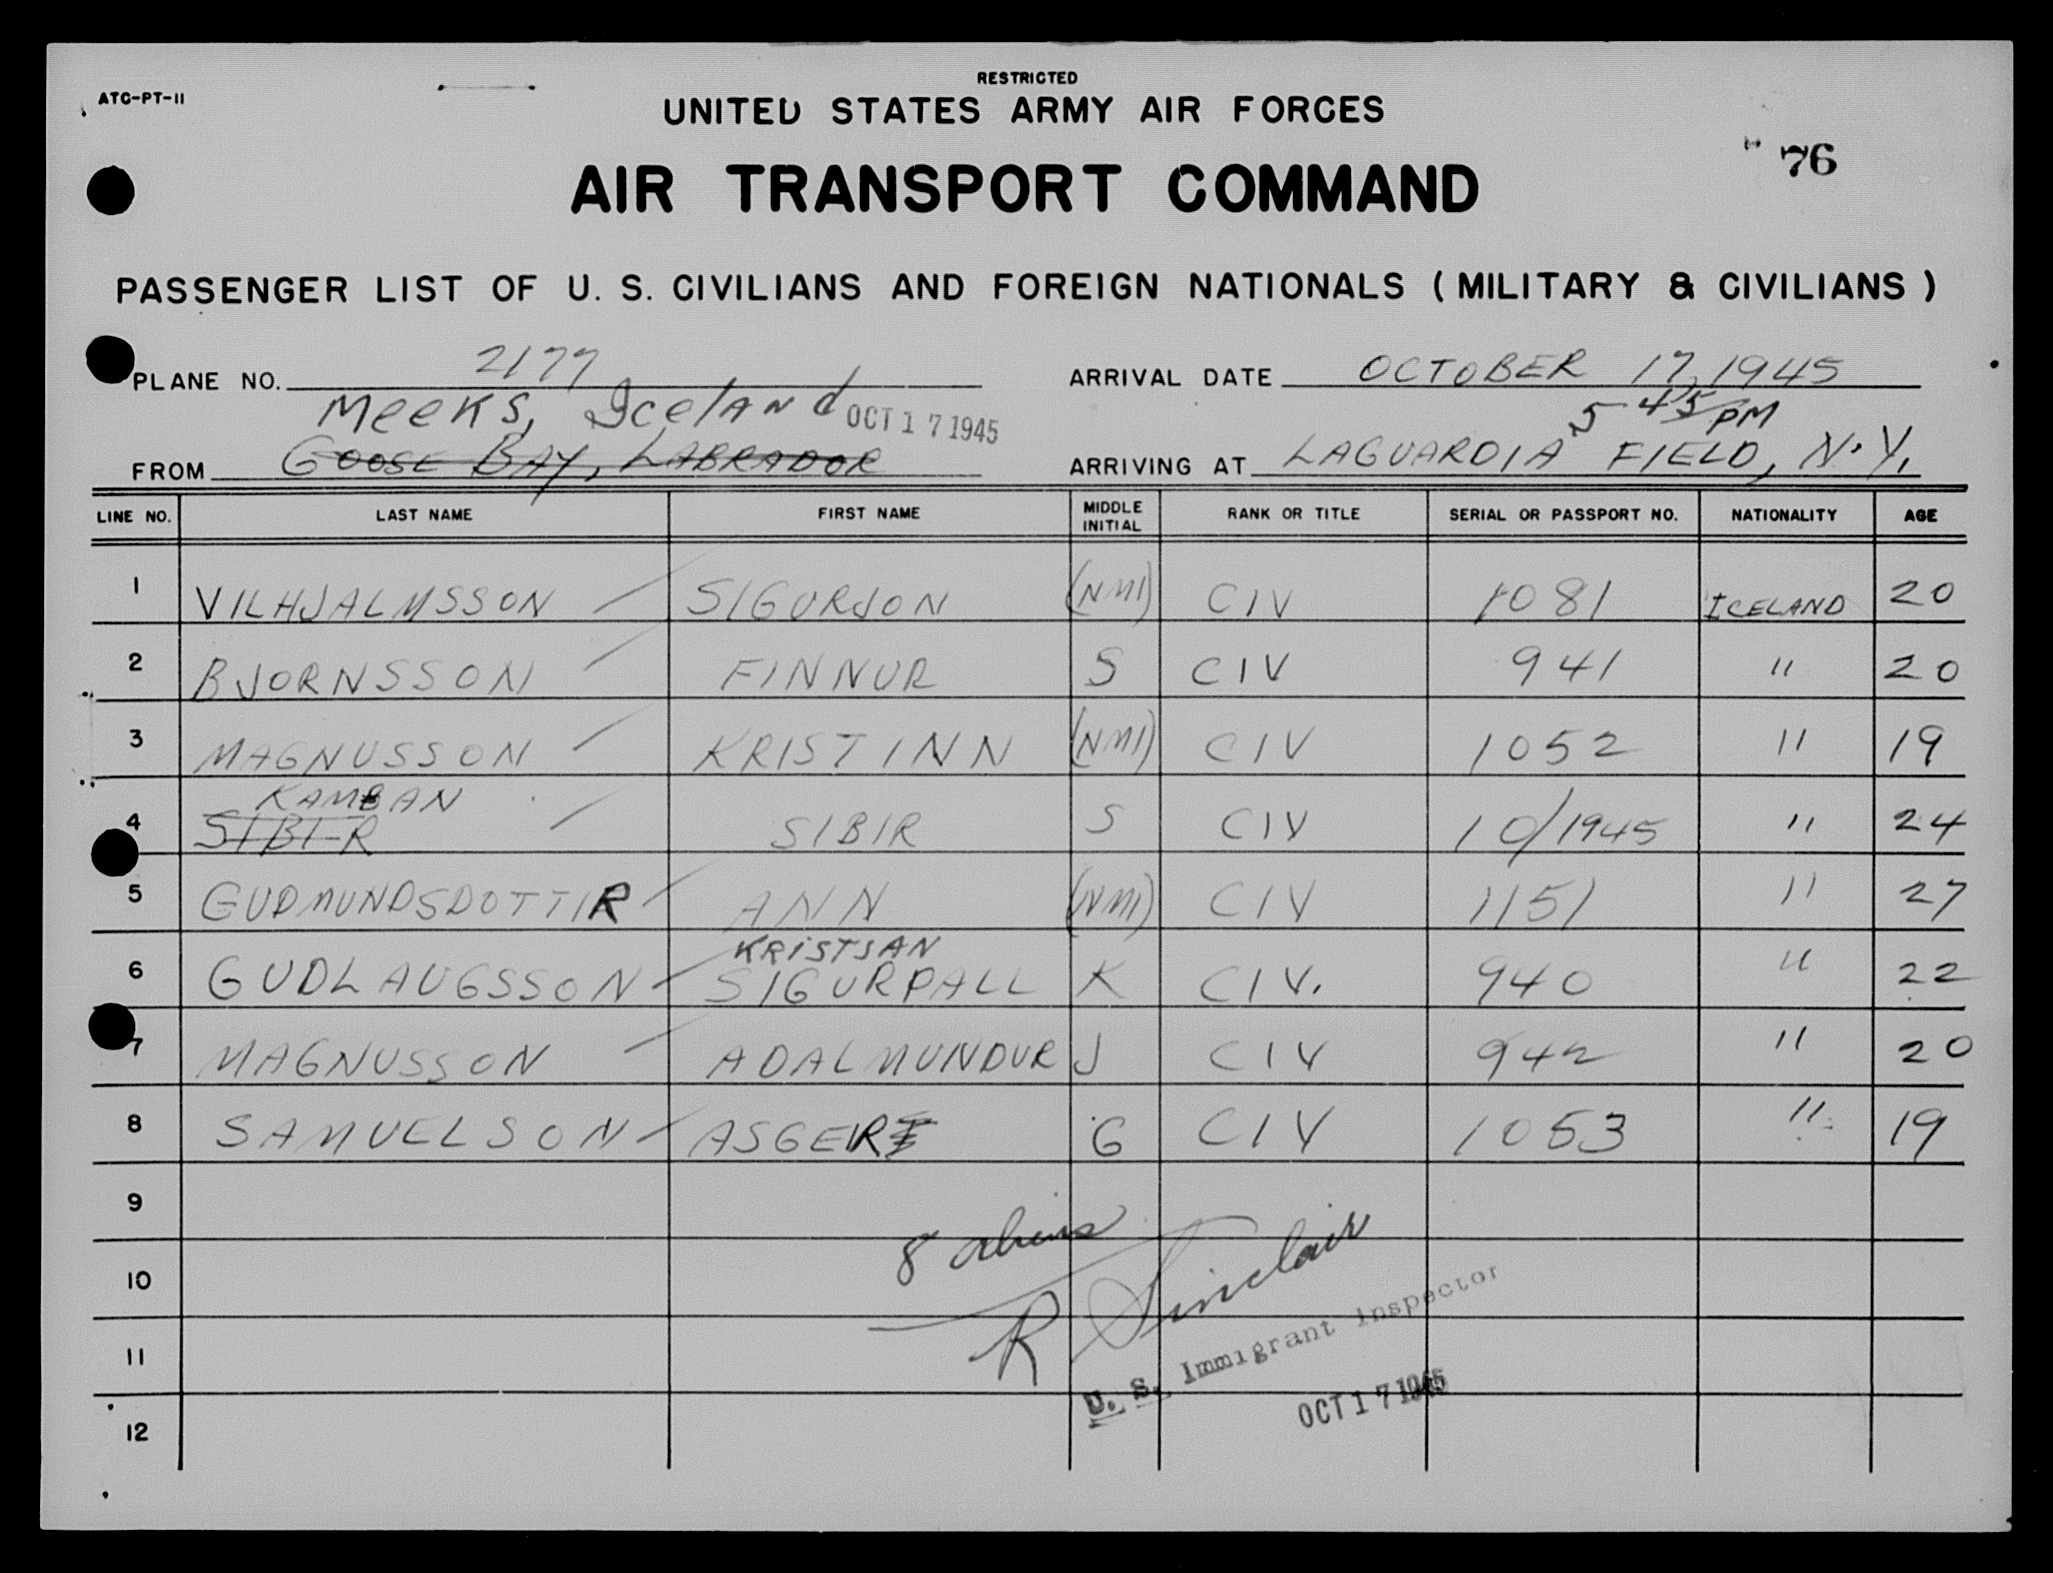 RESTRICTED
ATC-PT-11
UNITED STATES ARMY AIR FORCES
76
AIR TRANSPORT COMMAND
PASSENGER LIST OF U. S. CIVILIANS AND FOREIGN NATIONALS ( MILITARY & CIVILIANS )
PLANE NO. 2177 ARRIVAL DATE OCTOBER 17, 1945
MEEKS, Iceland OCT 17 1945 5 45 PM
FROM GOOSE BAY, LABRADOR ARRIVING AT LAGUARDIA FIELD, N.Y.
LINE NO. LAST NAME FIRST NAME MIDDLE INITIAL RANK OR TITLE SERIAL OR PASSPORT NO. NATIONALITY AGE
1 VILHJALMSSON SIGURJON (NMI) CIV 1081 ICELAND 20
2 BJORNSSON FINNUR S CIV 941 " 20
3 MAGNUSSON KRISTINN (NMI) CIV 1052 " 19
KAMBAN
4 SIBIR SIBIR S CIV 10/1945 " 24
5 GUDMUNDSDOTTIR ANN (NMI) CIV 1151 " 27
KRISTJAN
6 GUDLAUGSSON SIGURPALL K CIV. 940 " 22
7 MAGNUSSON ADALMUNDUR J CIV 942 " 20
8 SAMUELSON ASGER G CIV 1053 " 19
9
8 aliens
10
R Sinclair
11
U. S. Immigrant Inspector
OCT 17 1945
12